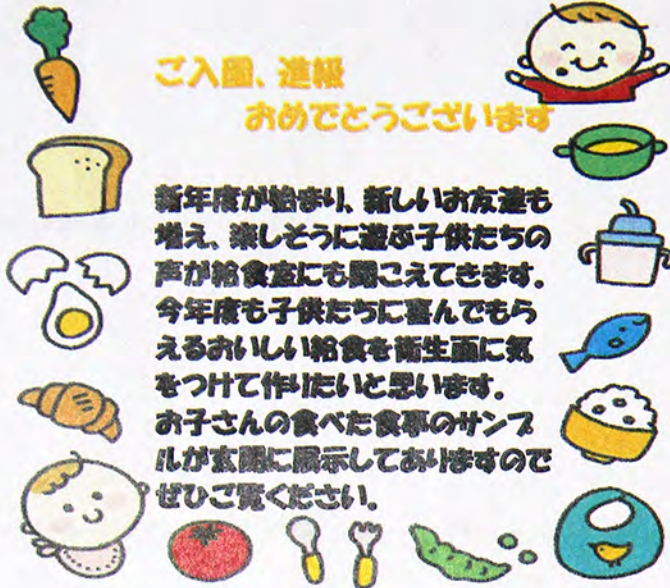 ご入園、進級
おめでとうございます
新年度が始まり、新しいお友達も
増え、楽しそうに遊ぶ子供たちの
声が給食室にも聞こえてきます。
今年度も子供たちに喜んでもら
えるおいしい給食を衛生面に気
をつけて作りたいと思います。
お子さんの食べた食事のサンプ
ルが玄関に展示してありますので
ぜひご覧ください。